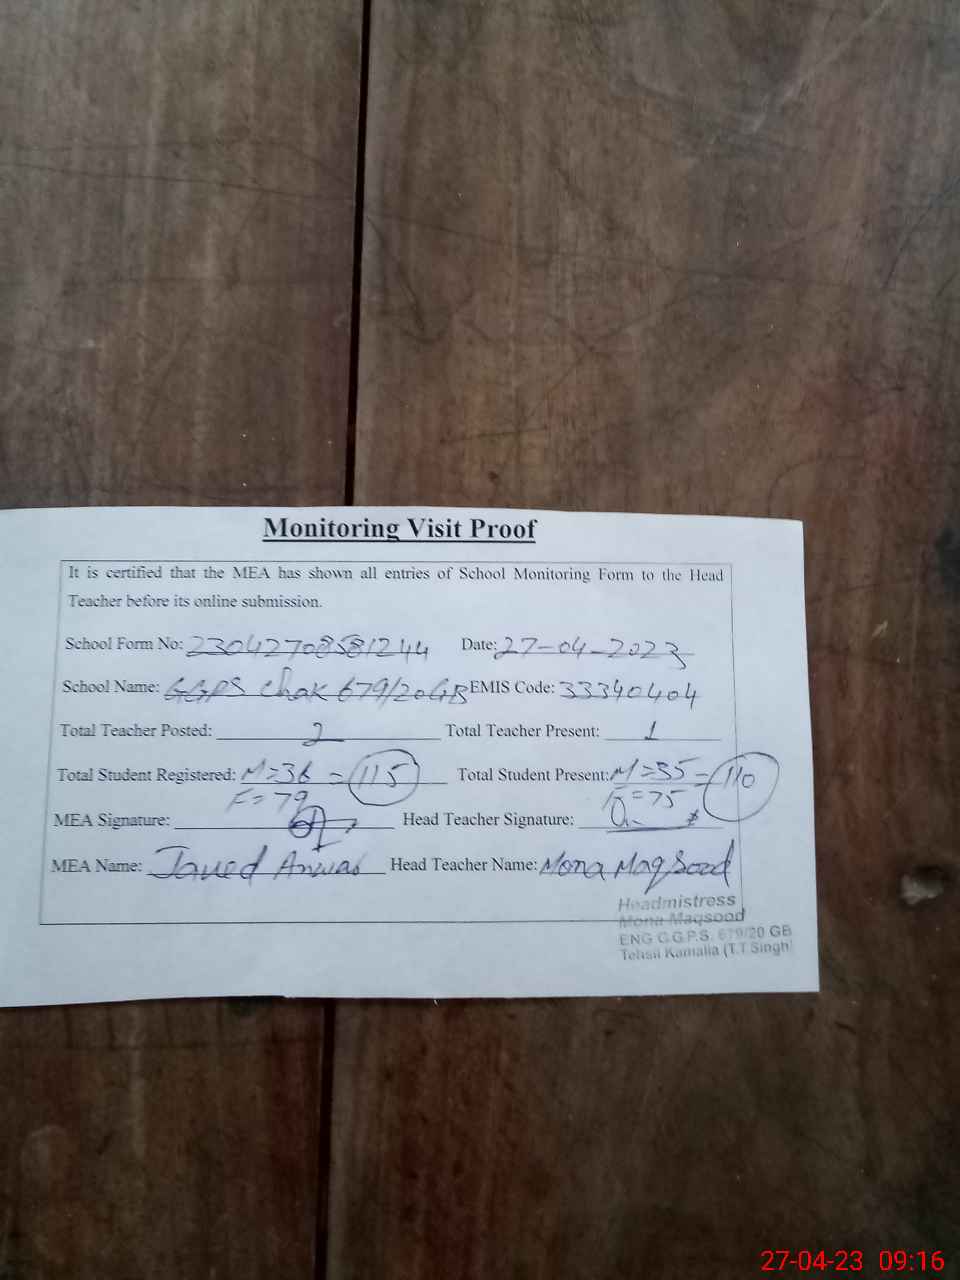 Monitoring Visit Proof
It is certified that the MEA has shown all entries of School Monitoring Form to the Head
Teacher before its online submission.
School Form No: 23042708581244 Date: 27-04-2023
School Name: GGPS Chak 679/20GB EMIS Code: 33340404
Total Teacher Posted: 2 Total Teacher Present: 1
Total Student Registered: M=36 = 115 Total Student Present: M=35 = 110
F=79 F=75
MEA Signature: Head Teacher Signature:
MEA Name: Javed Anwar Head Teacher Name: Mona Maqsood
Headmistress
Mona Maqsood
ENG G.G.P.S. 679/20 GB
Tehsil Kamalia (T.T.Singh)
27-04-23 09:16